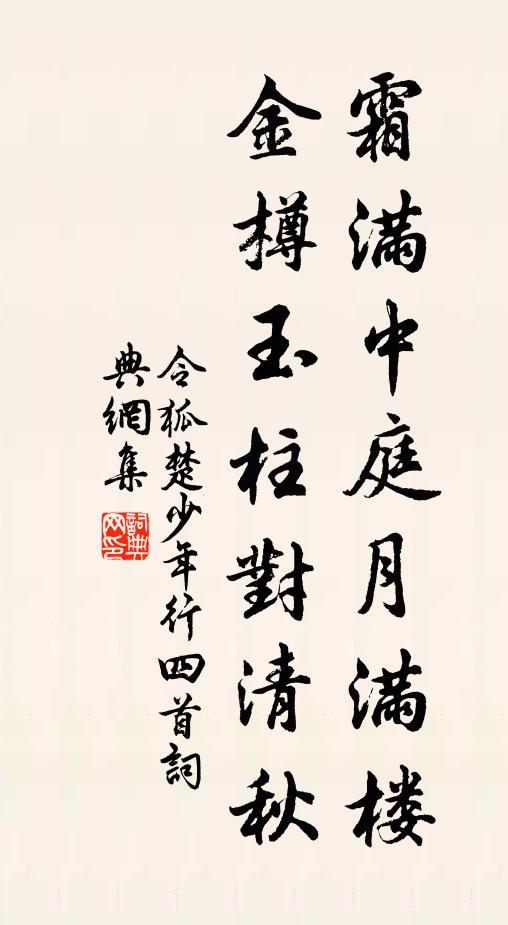 霜滿中庭月滿楼
金樽玉柱對清秋
令狐楚少年行四首詞
典網集
詞典
网印